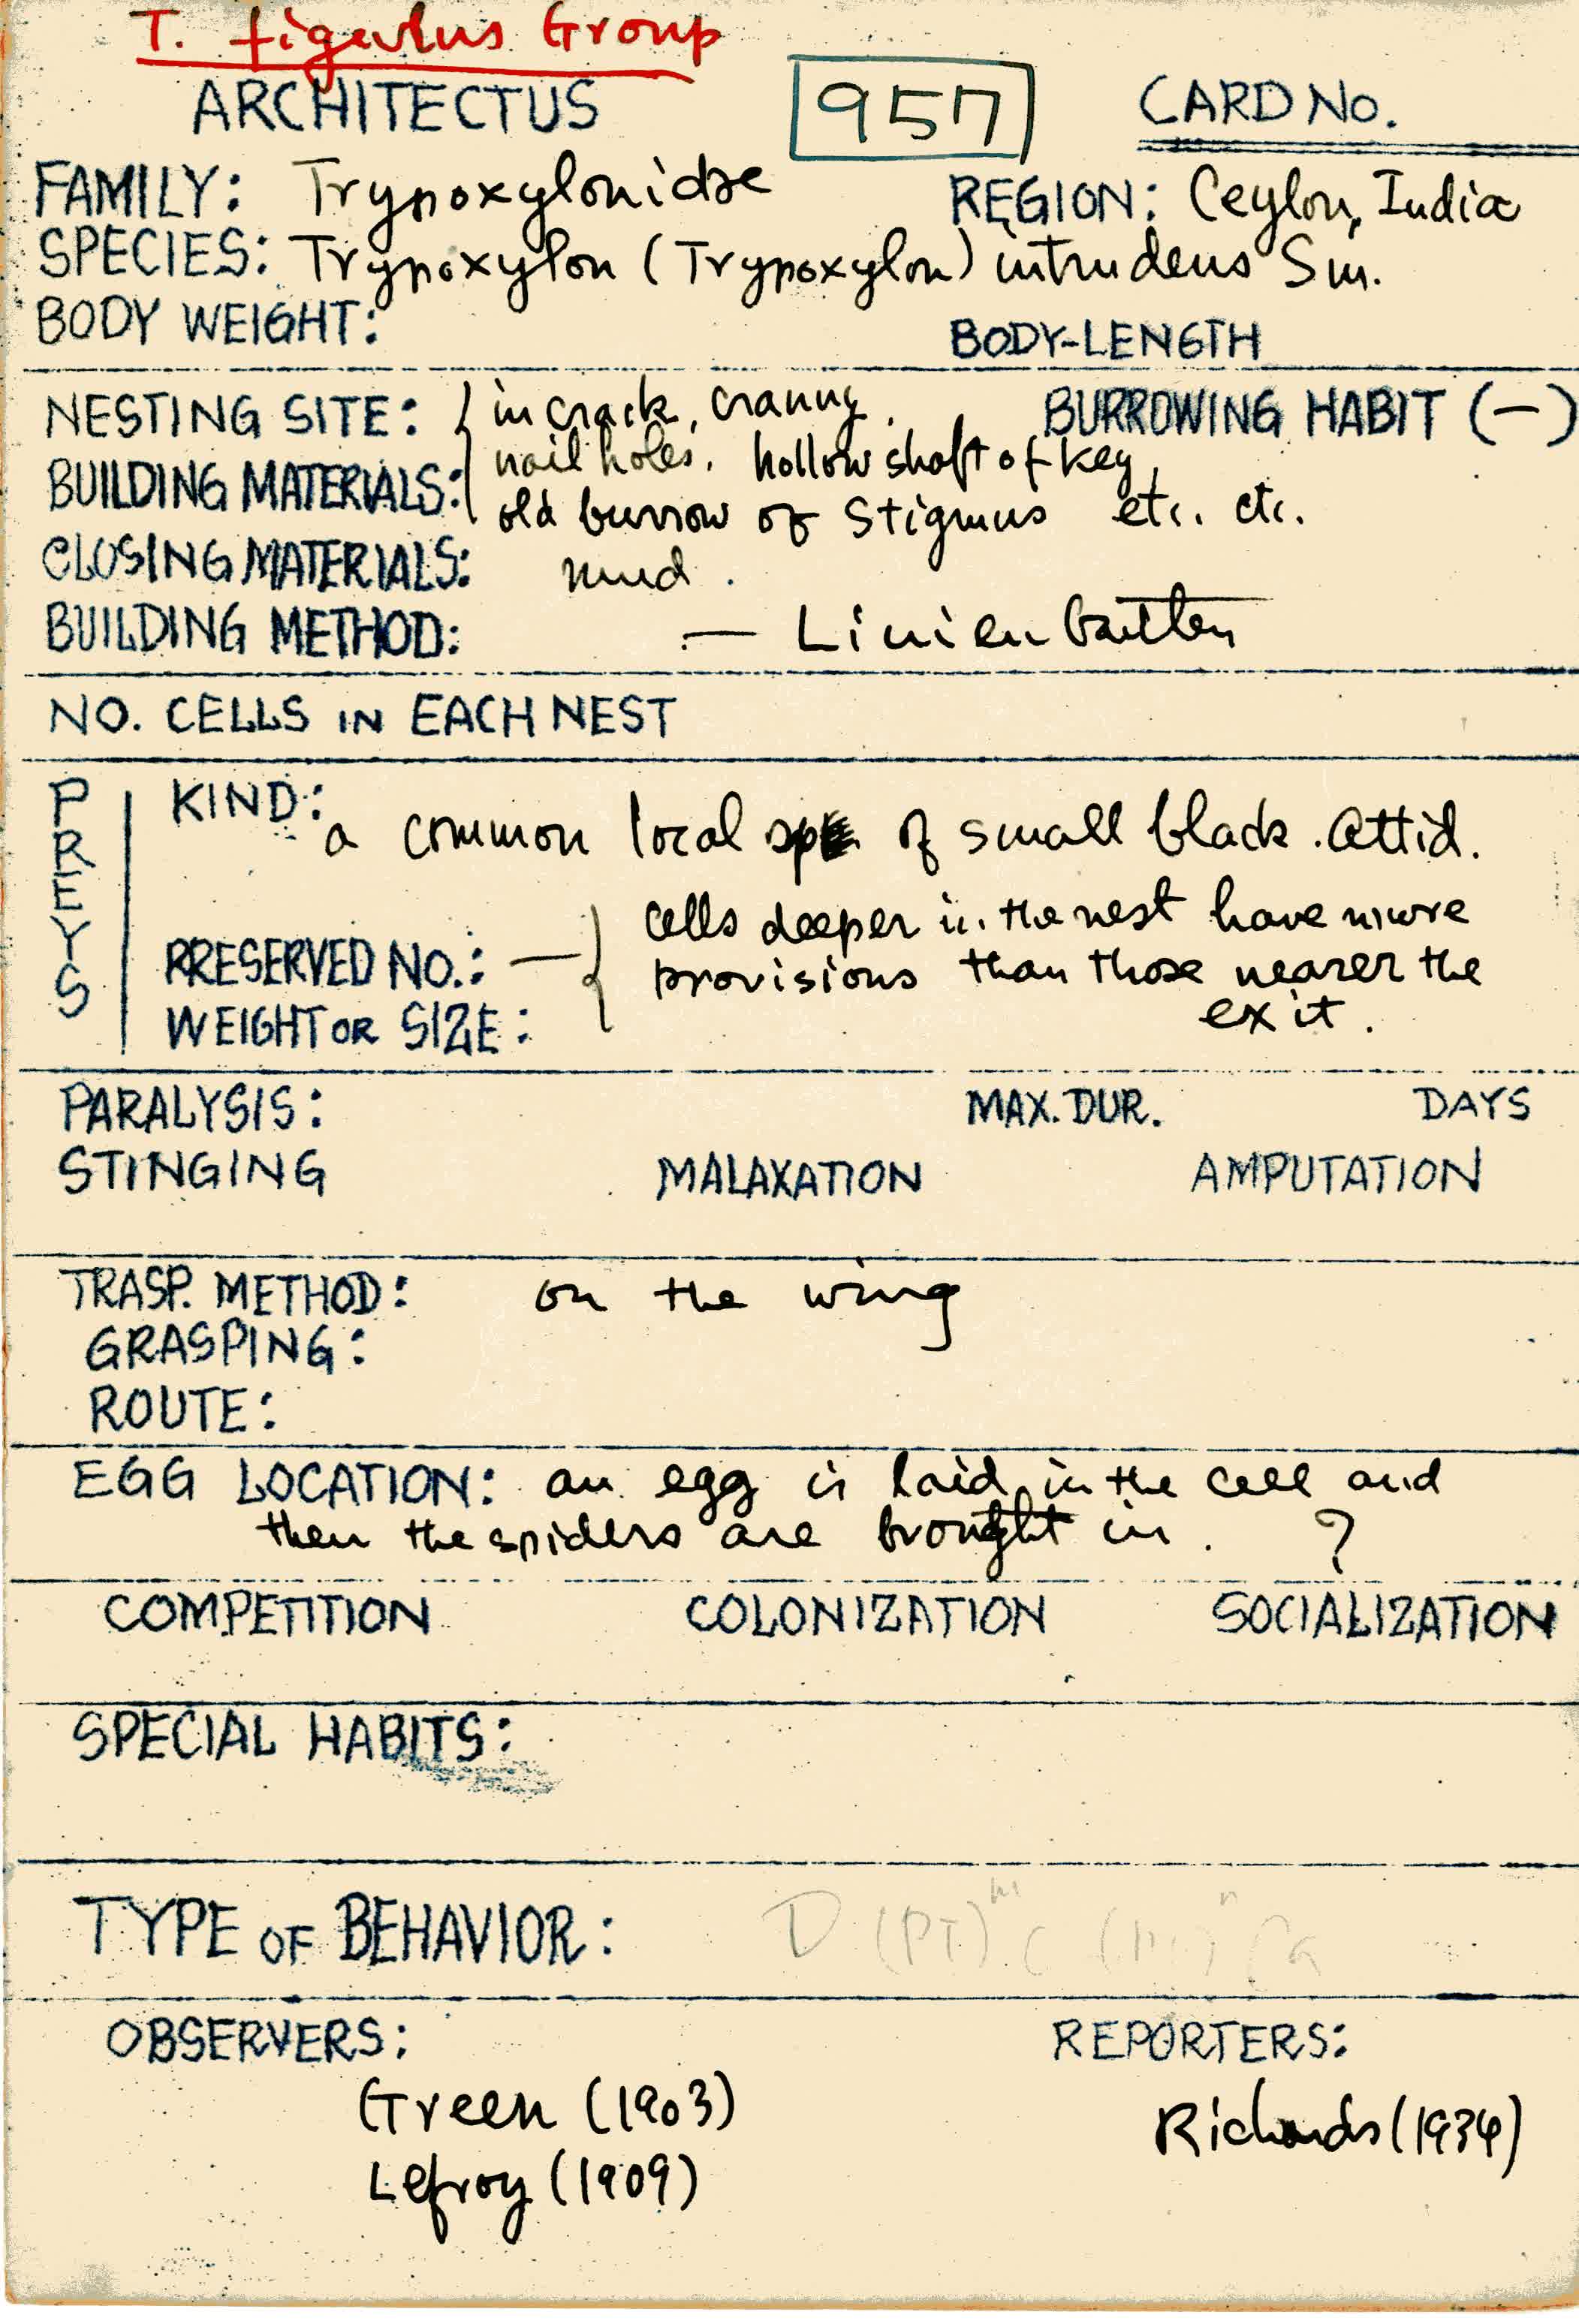 T. figulus Group
ARCHITECTUS 957 CARD NO.
FAMILY: Trypoxylonidae REGION: Ceylon, India
SPECIES: Trypoxylon (Trypoxylon) intrudens Sm.
BODY WEIGHT: BODY-LENGTH
NESTING SITE: in crack, cranny, BURROWING HABIT (-)
BUILDING MATERIALS: nail holes, hollow shaft of key,
old burrow of Stigmus etc. etc.
CLOSING MATERIALS: mud.
BUILDING METHOD: — Linienbauten
NO. CELLS IN EACH NEST
PREYS
KIND: a common local sp. of small black attid.
PRESERVED NO.: — cells deeper in the nest have more
provisions than those nearer the
WEIGHT OR SIZE: exit.
PARALYSIS: MAX. DUR. DAYS
STINGING MALAXATION AMPUTATION
TRASP. METHOD: on the wing
GRASPING:
ROUTE:
EGG LOCATION: an egg is laid in the cell and
then the spiders are brought in. ?
COMPETITION COLONIZATION SOCIALIZATION
SPECIAL HABITS:
TYPE OF BEHAVIOR:
OBSERVERS: REPORTERS:
Green (1903) Richards (1934)
Lefroy (1909)